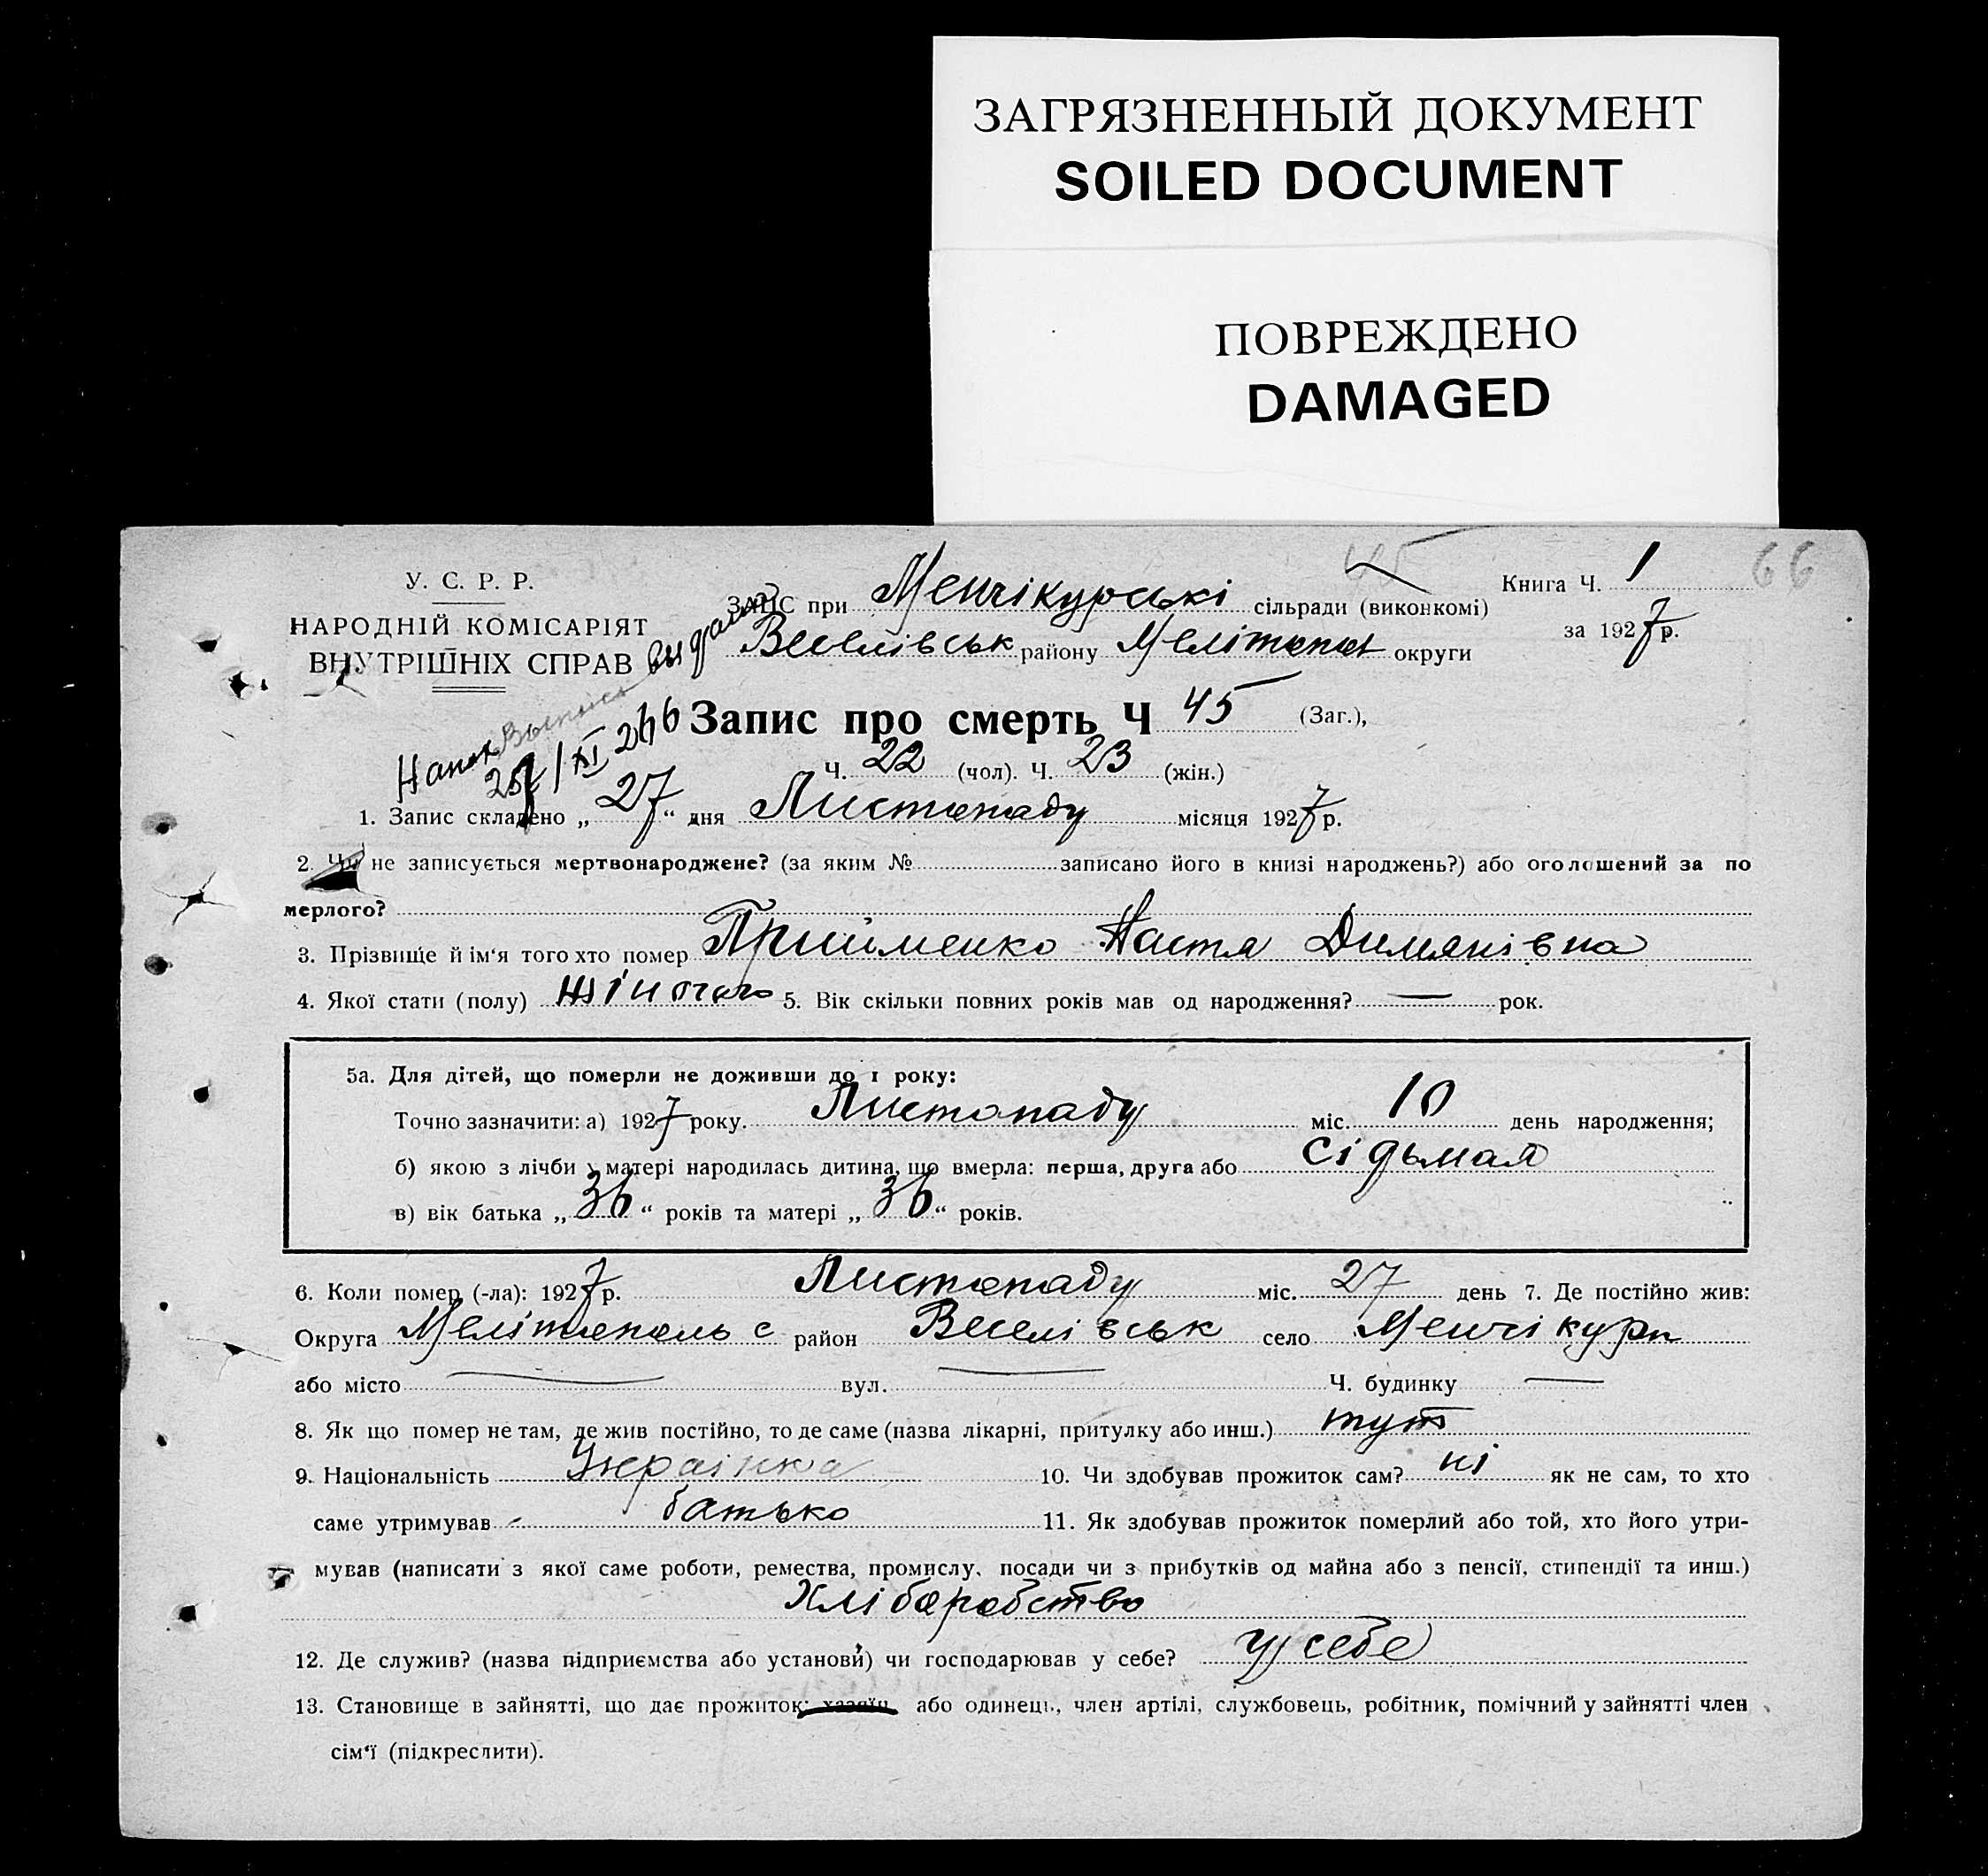 ЗАГРЯЗНЕННЫЙ ДОКУМЕНТ
SOILED DOCUMENT
ПОВРЕЖДЕНО
DAMAGED
45 66
У. С. Р. Р.
НАРОДНІЙ КОМІСАРІЯТ
ВНУТРІШНІХ СПРАВ
ЗАПС при Менчікурські сільради (виконкомі)
Веселівськ району Мелітопол округи
Книга Ч. 1
за 1927 р.
Запис про смерть Ч 45 (Заг.),
Ч. 22 (чол). Ч. 23 (жін.)
1. Запис складено „ 27 “ дня Листопаду місяця 1927 р.
2. Чи не записується мертвонароджене? (за яким № записано його в книзі народжень?) або оголошений за по
мерлого?
3. Прізвище й ім‘я того хто помер Прийменко Настя Димянівна
4. Якої стати (полу) жіночого 5. Вік скільки повних років мав од народження? — рок.
5а. Для дітей, що померли не доживши до 1 року:
Точно зазначити: а) 1927 року. Листопаду міс. 10 день народження;
б) якою з лічби у матері народилась дитина, що вмерла: перша, друга або сідьмая
в) вік батька „ 36 “ років та матері „ 36 “ років.
6. Коли помер (-ла): 1927 р. Листопаду міс. 27 день 7. Де постійно жив:
Округа Мелітополь с район Веселівськ село Менчікури
або місто — вул. — Ч. будинку —
8. Як що помер не там, де жив постійно, то де саме (назва лікарні, притулку або инш.) тут
9. Національність Українка 10. Чи здобував прожиток сам? ні як не сам, то хто
саме утримував батько 11. Як здобував прожиток померлий або той, хто його утри-
мував (написати з якої саме роботи, ремества, промислу, посади чи з прибутків од майна або з пенсії, стипендії та инш.)
Хліборобство
12. Де служив? (назва підприємства або установи) чи господарював у себе? у себе
13. Становище в зайнятті, що дає прожиток: хазяїн або одинець, член артілі, службовець, робітник, помічний у зайнятті член
сім‘ї (підкреслити).